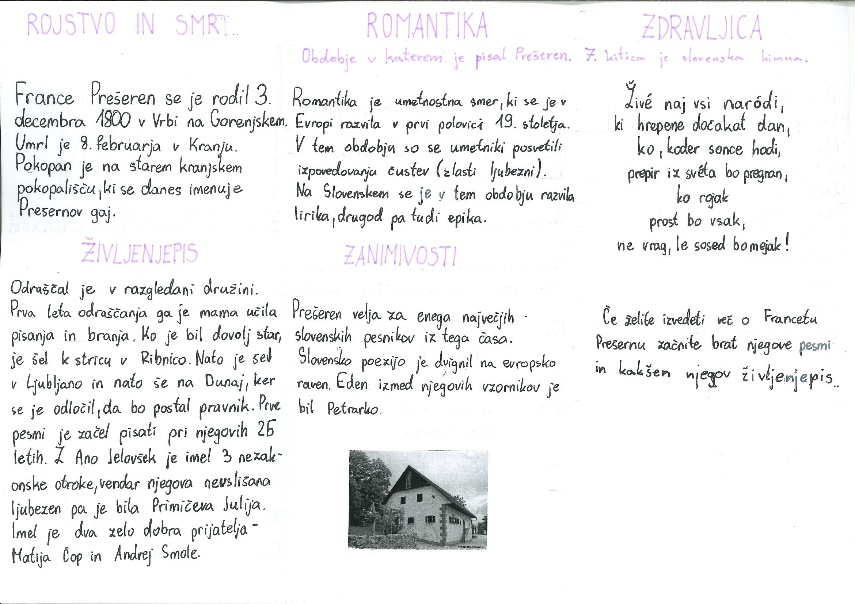 ROJSTVO IN SMRT
France Prešeren se je rodil 3.
decembra 1800 v Vrbi na Gorenjskem.
Umrl je 8. februarja v Kranju.
Pokopan je na starem kranjskem
pokopališču, ki se danes imenuje
Prešernov gaj.
ŽIVLJENJEPIS
Odraščal je v razgledani družini.
Prva leta odraščanja ga je mama učila
pisanja in branja. Ko je bil dovolj star,
je šel k stricu v Ribnico. Nato je šel
v Ljubljano in nato še na Dunaj, ker
se je odločil, da bo postal pravnik. Prve
pesmi je začel pisati pri njegovih 25
letih. Z Ano Jelovšek je imel 3 nezak-
onske otroke, vendar njegova neuslišana
ljubezen pa je bila Primičeva Julija.
Imel je dva zelo dobra prijatelja -
Matija Čop in Andrej Smole.
ROMANTIKA
Obdobje v katerem je pisal Prešeren.
Romantika je umetnostna smer, ki se je v
Evropi razvila v prvi polovici 19. stoletja.
V tem obdobju so se umetniki posvetili
izpovedovanju čustev (zlasti ljubezni).
Na Slovenskem se je v tem obdobju razvila
lirika, drugod pa tudi epika.
ZANIMIVOSTI
Prešeren velja za enega največjih
slovenskih pesnikov iz tega časa.
Slovensko poezijo je dvignil na evropsko
raven. Eden izmed njegovih vzornikov je
bil Petrarka.
ZDRAVLJICA
7. kitica je slovenska himna.
Živé naj vsi naródi,
ki hrepene dočakat dan,
ko, koder sonce hodi,
prepir iz svéta bo pregnan,
ko rojak
prost bo vsak,
ne vrag, le sosed bo mejak!
Če želite izvedeti več o Francetu
Prešernu začnite brat njegove pesmi
in kakšen njegov življenjepis.